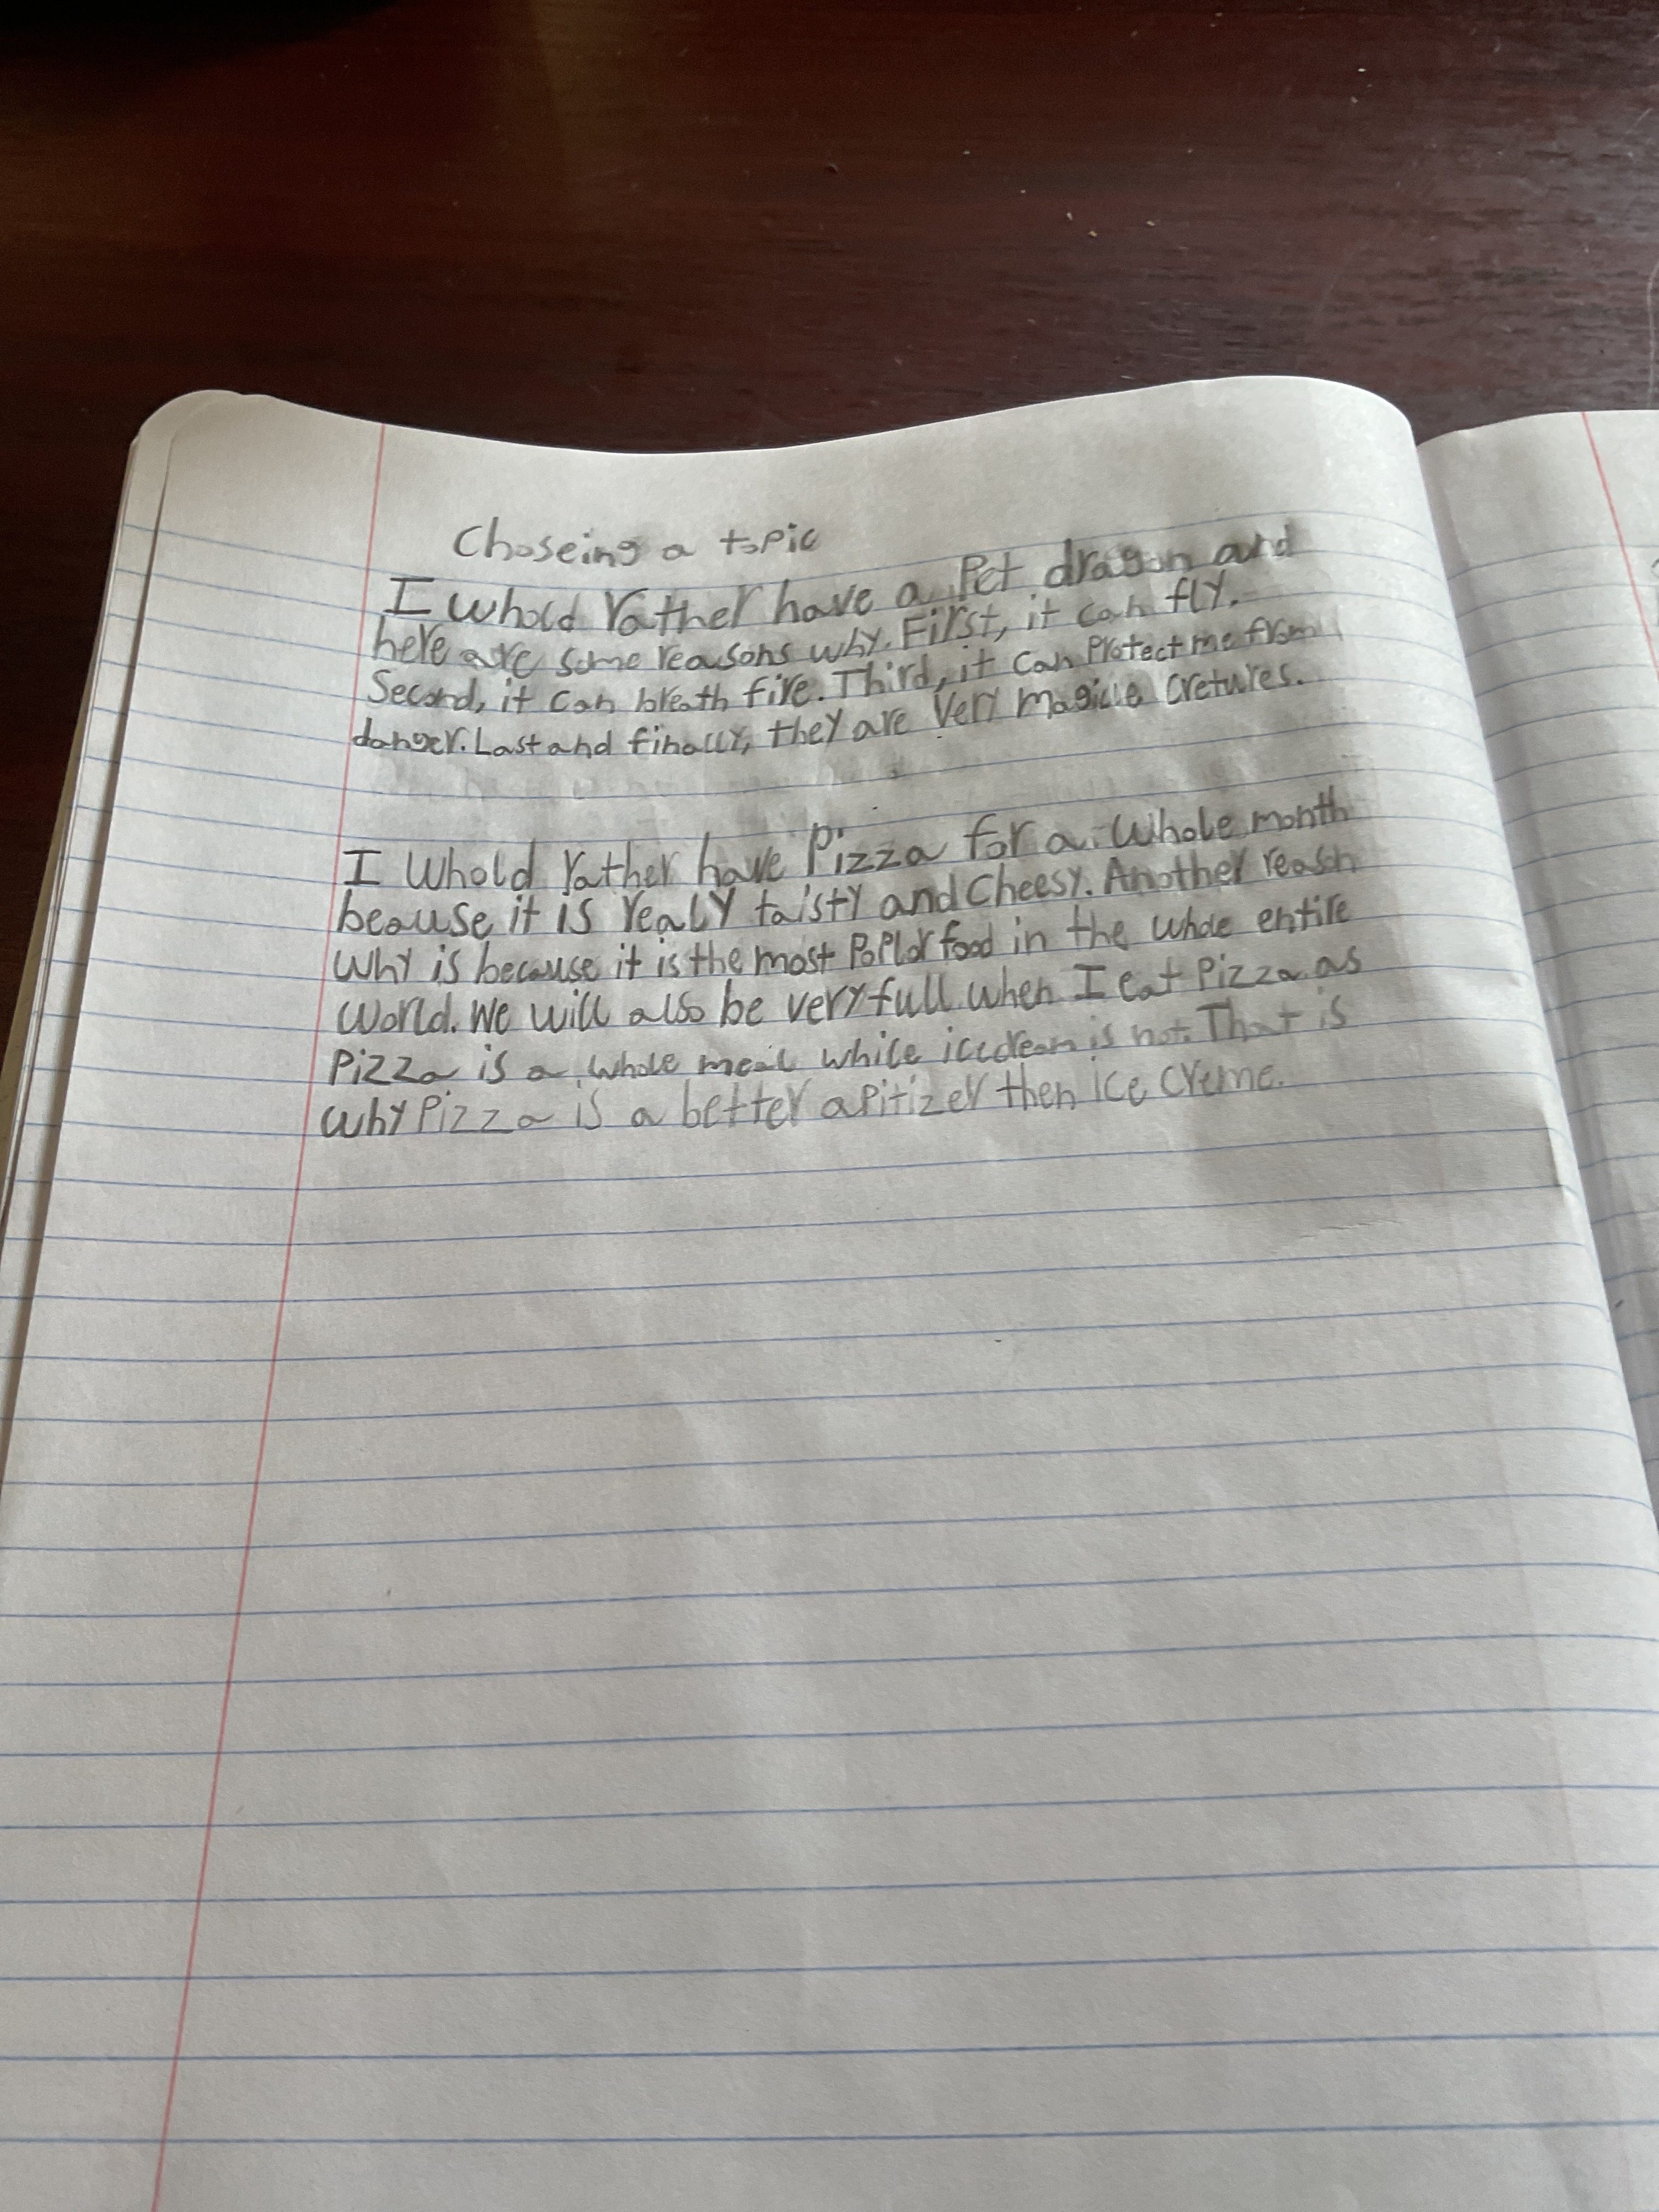 Choseing a topic
I whold rather have a Pet dragon and
here are some reasons why. First, it can fly.
Second, it can breath fire. Third, it can Protect me from
danger. Last and finally, they are very magicle cretures.
I whold rather have Pizza for a whole month
beause it is realy taisty and Cheesy. Another reason
why is because it is the most Poplor food in the whole entire
world. We will also be very full when I eat Pizza as
Pizza is a whole meal while icecream is not. That is
why Pizza is a better apitizer then ice creme.